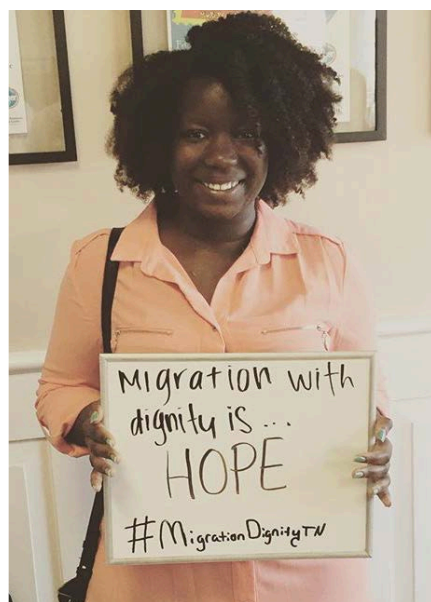 MIgRATION with
dignity is...
HOPE
#MigrationDignityTN